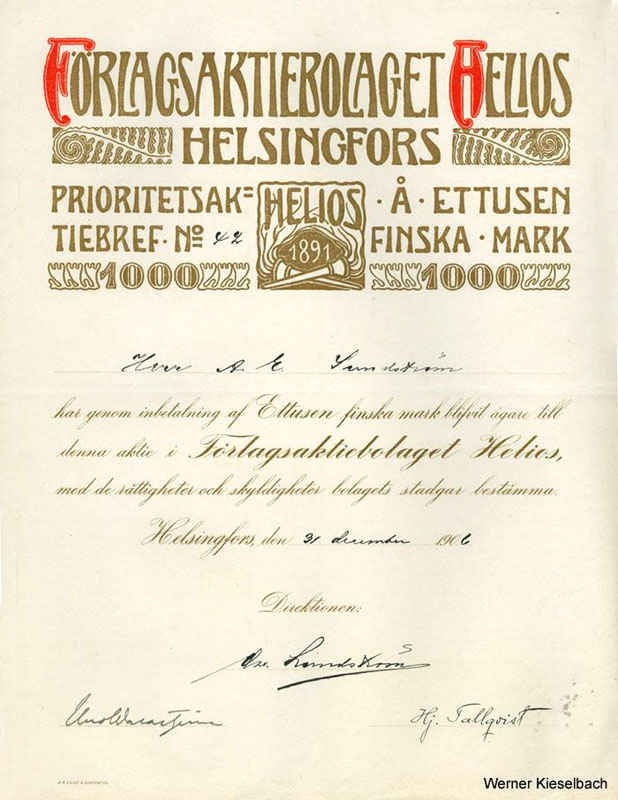 FÖRLAGSAKTIEBOLAGET HELIOS
HELSINGFORS
PRIORITETSAK= HELIOS · Å · ETTUSEN
TIEBREF · No 42 1891 FINSKA · MARK
1000 1000
Herr A. E. Sundström
har genom inbetalning af Ettusen finska mark blifvit ägare till
denna aktie i Förlagsaktiebolaget Helios,
med de rättigheter och skyldigheter bolagets stadgar bestämma.
Helsingfors, den 31 december 1906
Direktionen:
Lindström
Hj. Tallqvist
Werner Kieselbach